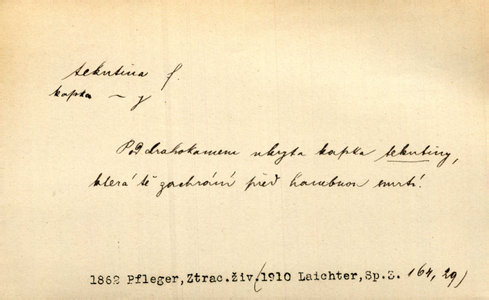 tekutina f.
kapka – y
Pod drahokamem ukryta kapka tekutiny,
která tě zachrání před hanebnou smrtí.
1862 Pfleger,Ztrac.živ.(1910 Laichter,Sp.3. 164, 29)